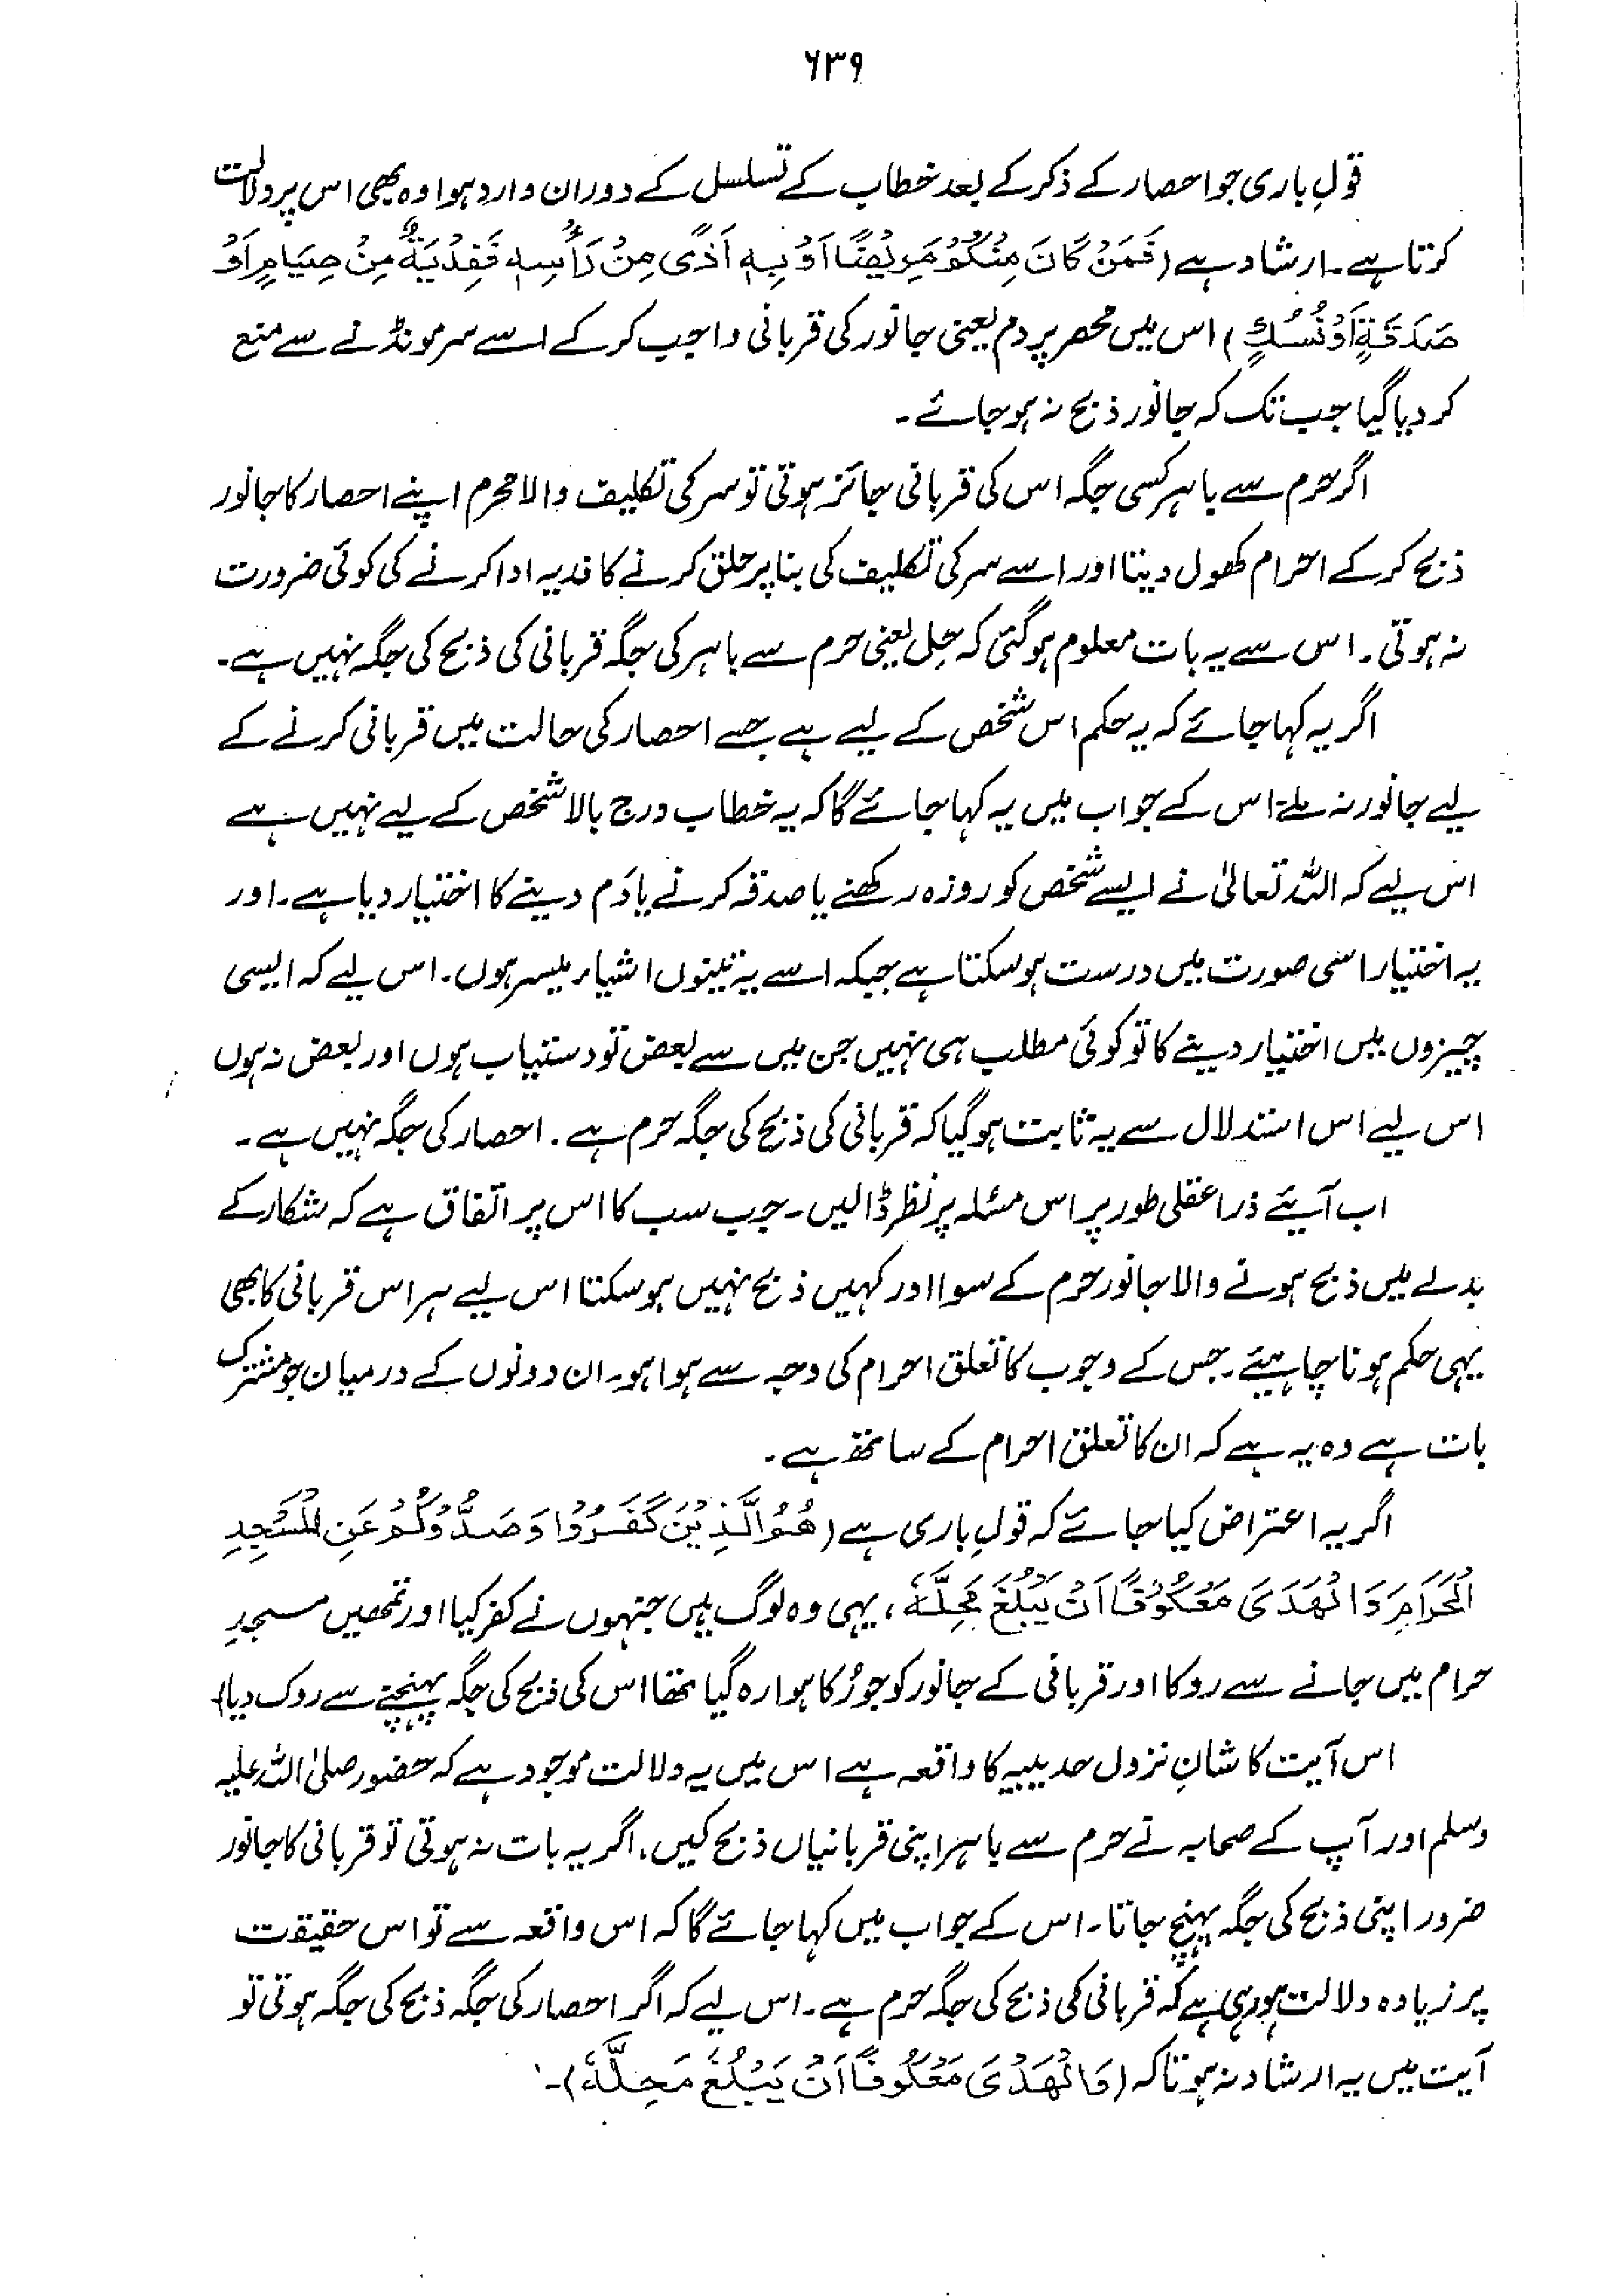 ۶۳۹
قولِ باری جو احصار کے ذکر کے بعد خطاب کے تسلسل کے دوران وارد ہوا وہ بھی اس پر دلالت
کرتا ہے۔ ارشاد ہے (فَمَنْ كَانَ مِنْكُمْ مَرِيْضًا اَوْ بِهٖ اَذًى مِنْ رَأْسِهٖ فَفِدْيَةٌ مِنْ صِيَامٍ اَوْ
صَدَقَةٍ اَوْ نُسُكٍ) اس میں محصر پر دم یعنی جانور کی قربانی واجب کر کے اسے سر مونڈنے سے منع
کر دیا گیا جب تک کہ جانور ذبح نہ ہو جائے۔
اگر حرم سے باہر کسی جگہ اس کی قربانی جائز ہوتی تو سر کی تکلیف والا محرم اپنے احصار کا جانور
ذبح کر کے احرام کھول دیتا اور اسے سر کی تکلیف کی بنا پر حلق کرنے کا فدیہ ادا کرنے کی کوئی ضرورت
نہ ہوتی۔ اس سے یہ بات معلوم ہو گئی کہ حِل یعنی حرم سے باہر کی جگہ قربانی کی ذبح کی جگہ نہیں ہے۔
اگر یہ کہا جائے کہ یہ حکم اس شخص کے لیے ہے جسے احصار کی حالت میں قربانی کرنے کے
لیے جانور نہ ملے، اس کے جواب میں یہ کہا جائے گا کہ یہ خطاب درج بالا شخص کے لیے نہیں ہے
اس لیے کہ اللہ تعالیٰ نے ایسے شخص کو روزہ رکھنے یا صدقہ کرنے یا دَم دینے کا اختیار دیا ہے۔ اور
یہ اختیار اسی صورت میں درست ہو سکتا ہے جبکہ اسے یہ تینوں اشیاء میسر ہوں۔ اس لیے کہ ایسی
چیزوں میں اختیار دینے کا تو کوئی مطلب ہی نہیں جن میں سے بعض تو دستیاب ہوں اور بعض نہ ہوں
اس لیے اس استدلال سے یہ ثابت ہو گیا کہ قربانی کی ذبح کی جگہ حرم ہے۔ احصار کی جگہ نہیں ہے۔
اب آیئے ذرا عقلی طور پر اس مسئلہ پر نظر ڈالیں۔ جب سب کا اس پر اتفاق ہے کہ شکار کے
بدلے میں ذبح ہونے والا جانور حرم کے سوا اور کہیں ذبح نہیں ہو سکتا اس لیے ہر اس قربانی کا بھی
یہی حکم ہونا چاہیئے۔ جس کے وجوب کا تعلق احرام کی وجہ سے ہوا ہو۔ ان دونوں کے درمیان جو مشترک
بات ہے وہ یہ ہے کہ ان کا تعلق احرام کے ساتھ ہے۔
اگر یہ اعتراض کیا جائے کہ قولِ باری ہے (هُمُ الَّذِيْنَ كَفَرُوْا وَصَدُّوْكُمْ عَنِ الْمَسْجِدِ
الْحَرَامِ وَالْهَدْىَ مَعْكُوْفًا اَنْ يَبْلُغَ مَحِلَّهٗ، یہی وہ لوگ ہیں جنہوں نے کفر کیا اور تمھیں مسجدِ
حرام میں جانے سے روکا اور قربانی کے جانور کو جو رُکا ہوا رہ گیا تھا اس کی ذبح کی جگہ پہنچنے سے روک دیا)
اس آیت کا شانِ نزول حدیبیہ کا واقعہ ہے اس میں یہ دلالت موجود ہے کہ حضور صلی اللہ علیہ
وسلم اور آپ کے صحابہ نے حرم سے باہر اپنی قربانیاں ذبح کیں۔ اگر یہ بات نہ ہوتی تو قربانی کا جانور
ضرور اپنی ذبح کی جگہ پہنچ جاتا۔ اس کے جواب میں کہا جائے گا کہ اس واقعہ سے تو اس حقیقت
پر زیادہ دلالت ہو رہی ہے کہ قربانی کی ذبح کی جگہ حرم ہے۔ اس لیے کہ اگر احصار کی جگہ ذبح کی جگہ ہوتی تو
آیت میں یہ ارشاد نہ ہوتا کہ (وَالْهَدْىَ مَعْكُوْفًا اَنْ يَبْلُغَ مَحِلَّهٗ)۔